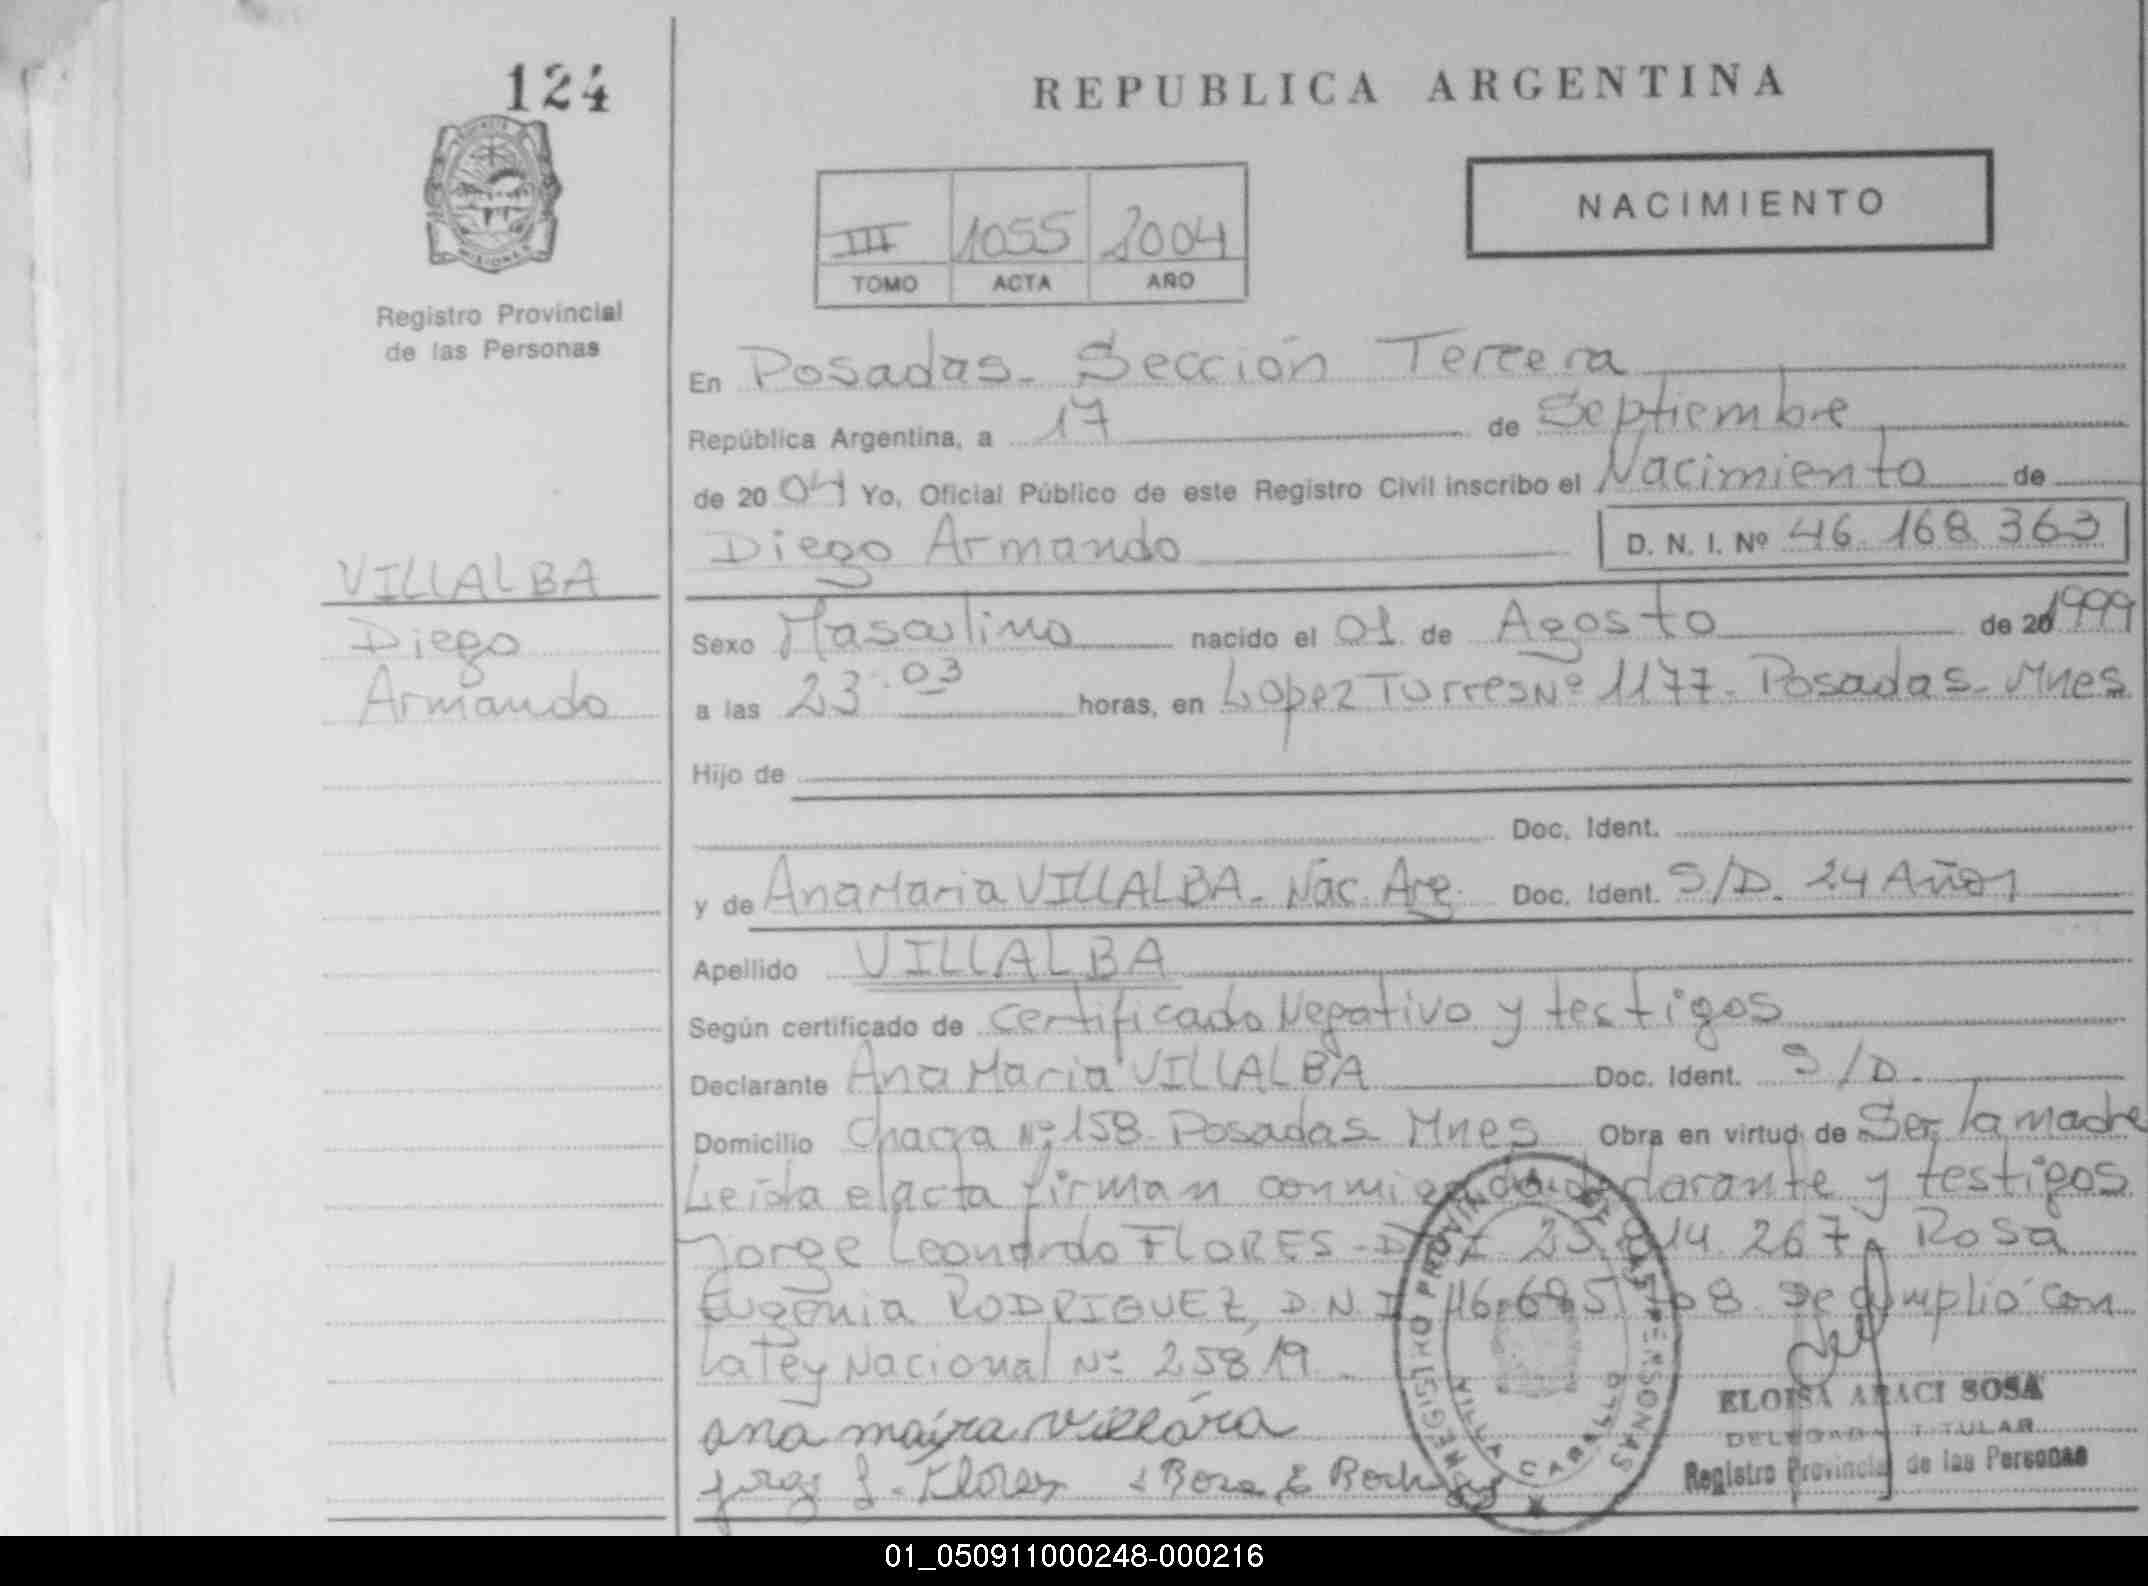 124
REPUBLICA ARGENTINA
NACIMIENTO
III 1055 2004
TOMO ACTA AÑO
Registro Provincial
de las Personas
En Posadas - Sección Tercera
República Argentina, a 17 de Septiembre
de 20 04 Yo, Oficial Público de este Registro Civil inscribo el Nacimiento de
Diego Armando D. N. I. Nº 46.168.363
VILLALBA
Diego
Armando
Sexo Masculino nacido el 01 de Agosto de 20 1999
a las 23:03 horas, en Lopez Torres Nº 1177. Posadas - Mnes
Hijo de
Doc. Ident.
y de Ana Maria VILLALBA - Nac. Arg. Doc. Ident. S/D. 24 Años
Apellido VILLALBA
Según certificado de Certificado Negativo y testigos
Declarante Ana Maria VILLALBA Doc. Ident. S/D.
Domicilio Chacra Nº 158 - Posadas Mnes Obra en virtud de Ser la madre
Leída el acta firman conmigo la declarante y testigos
Jorge Leonardo FLORES - 267, Rosa
Eugenia RODRIGUEZ, D.N.I. Se cumplió con
La Ley Nacional Nº 25819.
ana
J. Flores
REGISTRO PROVINCIAL DE LAS PERSONAS
VILLA CABALLO
ELOISA ARACI SOSA
DELEGADA TITULAR
Registro Provincial de las Personas
01_050911000248-000216